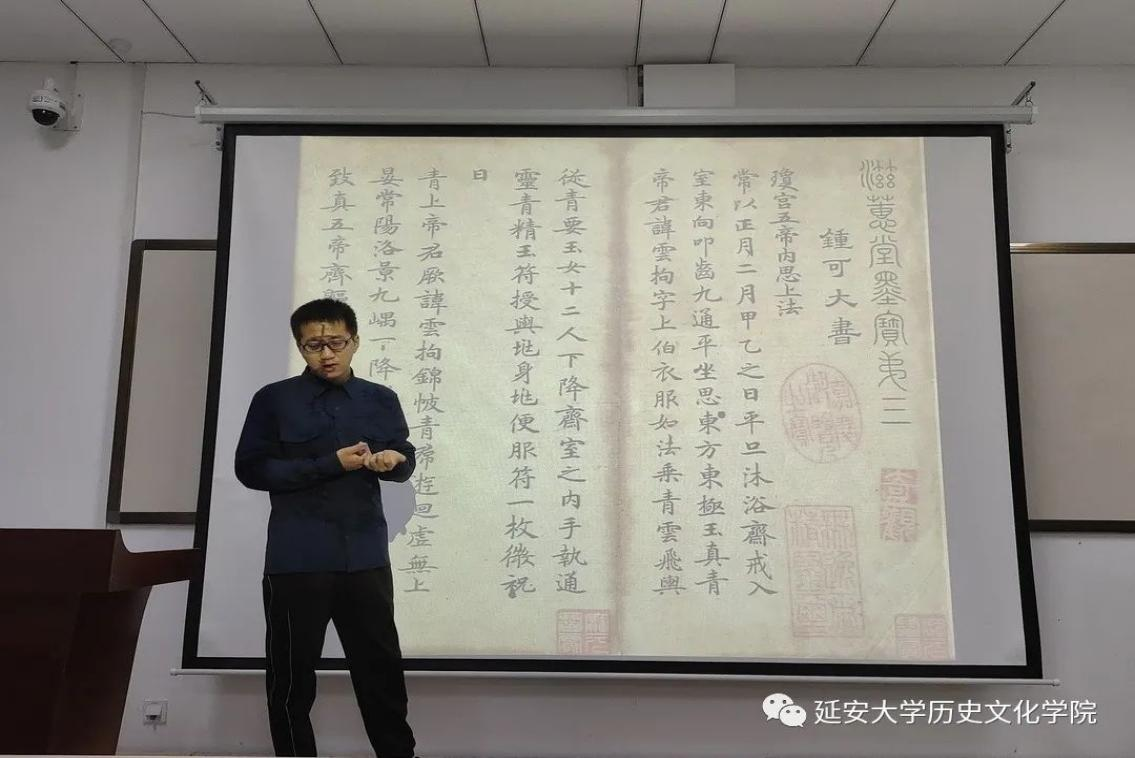 滋蕙堂墨寶弟三
鍾可大書
瓊宮五帝內思上法
常以正月二月甲乙之日平旦沐浴齋戒入
室東向叩齒九通平坐思東方東極玉真青
帝君諱雲拘字上伯衣服如法乘青雲飛輿
從青要玉女十二人下降齋室之內手執通
靈青精玉符授與地身地便服符一枚微祝
曰
青上帝君厥諱雲拘錦帔青帬遊迴虛無上
晏常陽洛景九嵎下降
致真五帝齊
延安大学历史文化学院